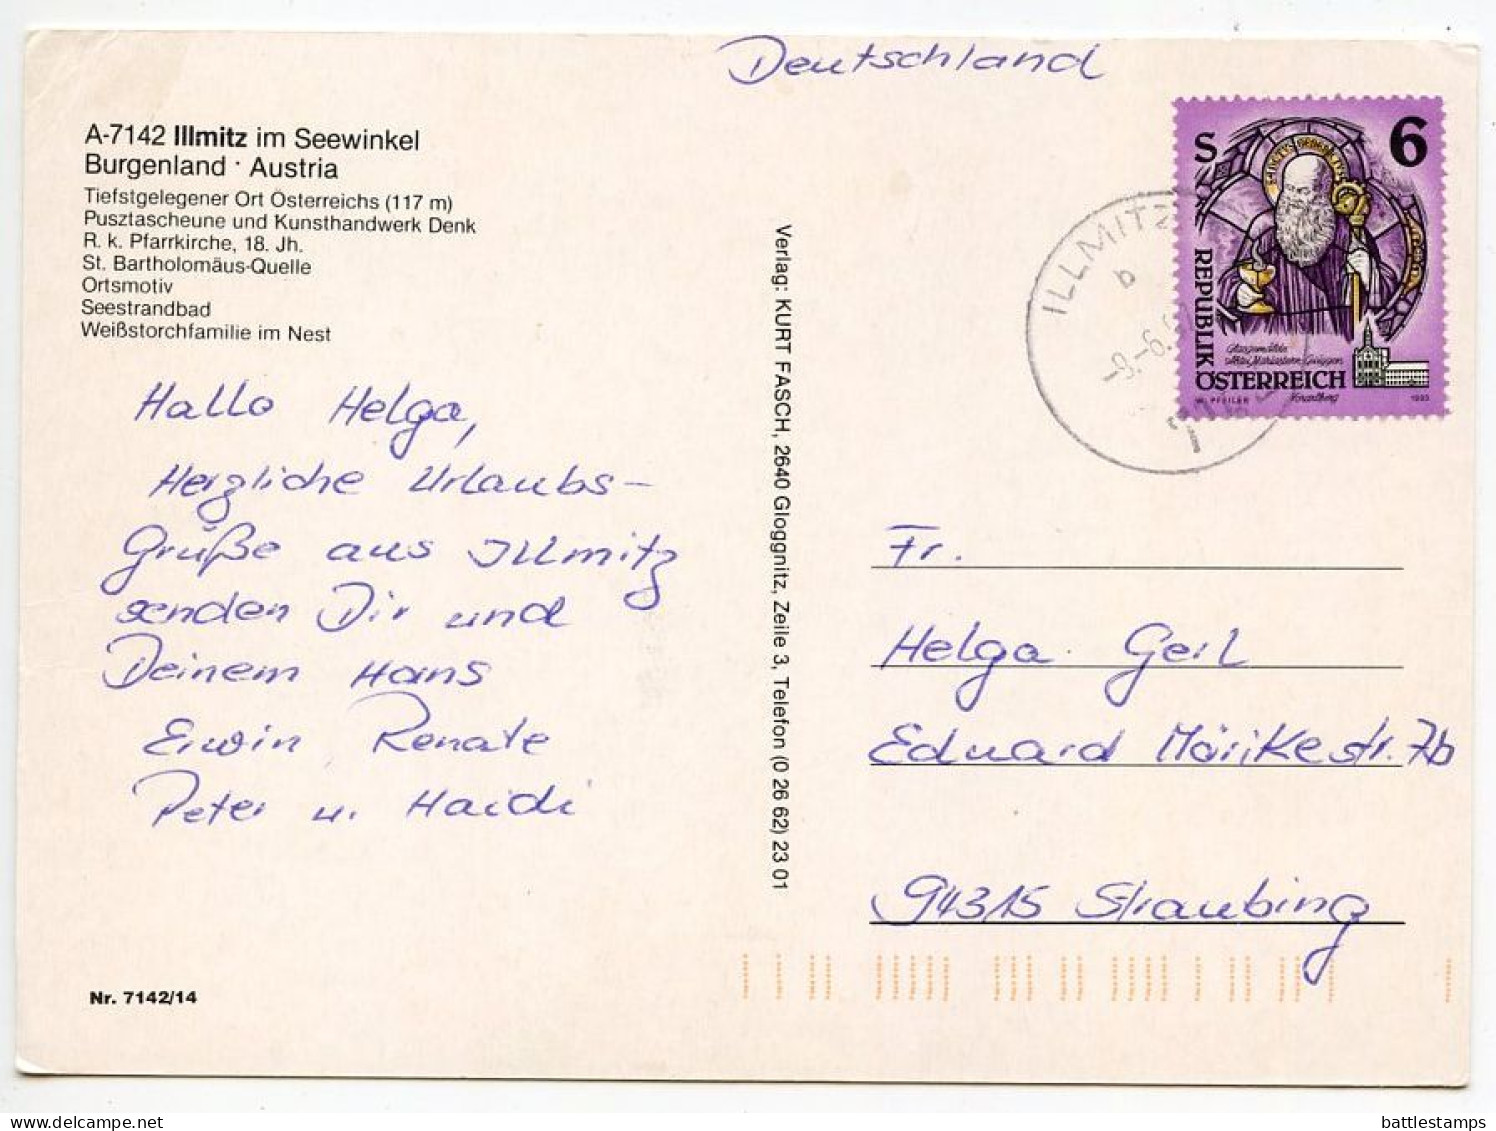 Deutschland
A-7142 Illmitz im Seewinkel
Burgenland · Austria
Tiefstgelegener Ort Österreichs (117 m)
Pusztascheune und Kunsthandwerk Denk
R. k. Pfarrkirche, 18. Jh.
St. Bartholomäus-Quelle
Ortsmotiv
Seestrandbad
Weißstorchfamilie im Nest
Hallo Helga,
Herzliche Urlaubs-
Grüße aus Illmitz
senden Dir und
Deinem Hans
Erwin Renate
Peter u. Haidi
Nr. 7142/14
Verlag: KURT FASCH, 2640 Gloggnitz, Zeile 3, Telefon (0 26 62) 23 01
S 6
REPUBLIK
ÖSTERREICH
W. PFEILER Vorarlberg 1993
ILLMITZ
b
-9.-6.
Fr.
Helga Geil
Eduard Mörikestr. 7b
94315 Straubing
battlestamps